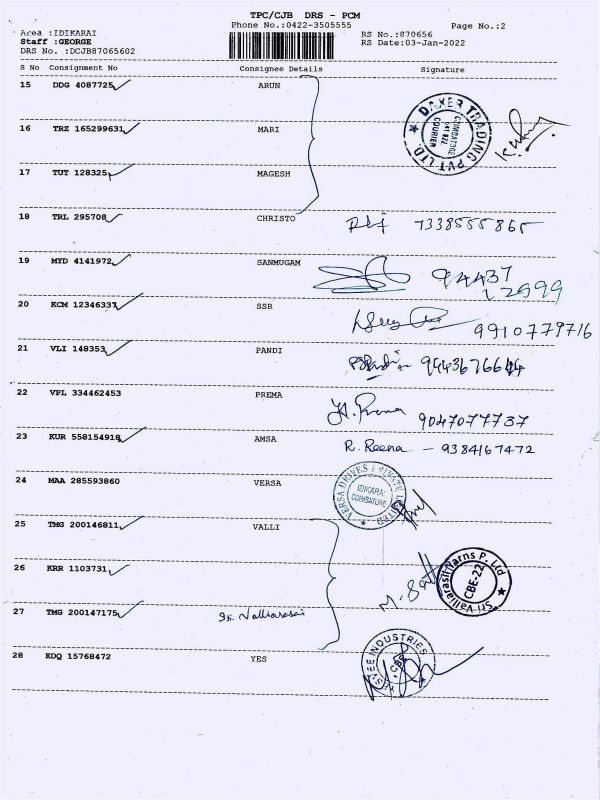 TPC/CJB DRS - PCM
Phone No.:0422-3505555 Page No.:2
Area :IDIKARAI RS No.:870656
Staff :GEORGE RS Date:03-Jan-2022
DRS No. :DCJB87065602
S No Consignment No Consignee Details Signature
15 DDG 4087725 ARUN
DAKER TRADING PVT LTD.
COIMBATORE
641 022
COURIER
16 TRZ 165299631 MARI
17 TUT 128325 MAGESH
18 TRL 295708 CHRISTO 7338555865
19 MYD 4141972 SANMUGAM 94437
12999
20 KCM 12346337 SSR 9910779716
21 VLI 148353 PANDI
22 VPL 334462453 PREMA Prema 9047077737
23 KUR 558154918 AMSA R. Reena - 9384167472
24 MAA 285593860 VERSA
VERSA DRIVES PRIVATE LIMITED
IDIKARAI
COIMBATORE
25 TMG 200146811 VALLI
26 KRR 1103731
Sri Valliarasi Yarns P. Ltd
CBE-22
27 TMG 200147175 Valliarasi
28 EDQ 15768472 YES
INDUSTRIES
CBE